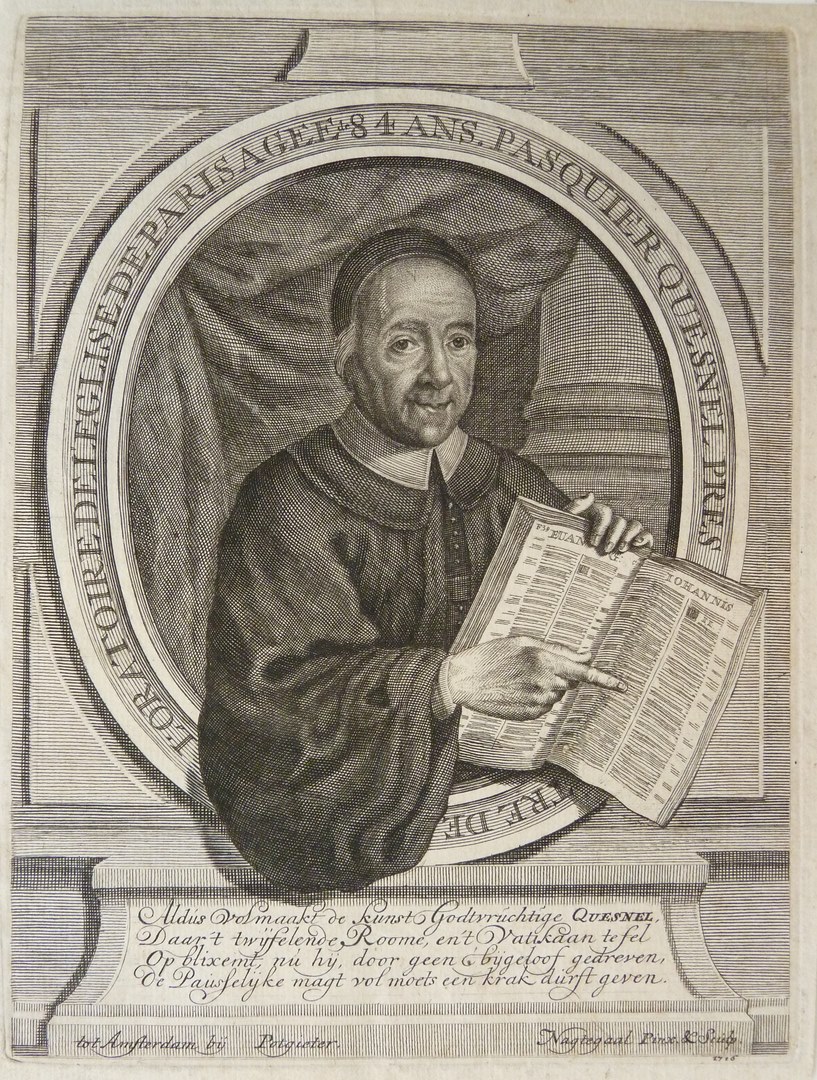 PASQUIER QUESNEL PRES
TRE DE
L'ORATOIRE DE LEGLISE DE PARIS AGEE 84 ANS.
IOHANNIS
Aldús volmaakt de kunst Godtvrúchtige QUESNEL,
Daar't twyfelende Roome, en't Vatikaan te fel
Op blixemt, nú hy, door geen bygeloof gedreven,
de Paússelyke magt vol moets een krak dúrft geven.
tot Amsterdam by Potgieter.
Nagtegaal Pinx. & Sculp.